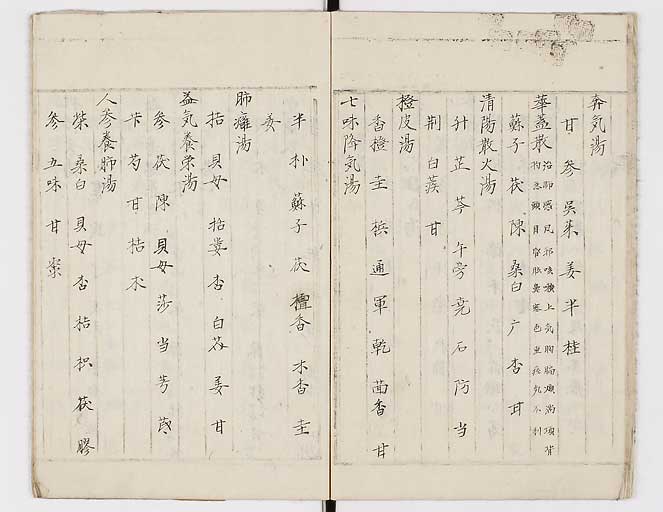 奔気湯
甘 参 呉茱 姜 半 桂
華蓋散 治肺感風邪咳嗽上気胸膈煩満項背
拘急頭目昏眩鼻塞色重痰気不利
蘇子 茯 陳 桑白 广 杏 甘
清陽散火湯
升 芷 芩 牛旁 尭 石 防 当
荊 白蒺 甘
橙皮湯
香橙 圭 梹 通 軍 乾 茴香 甘
七味降気湯
半 朴 蘇子 茯 檀香 木香 圭
姜
肺癰湯
桔 貝母 括蒌 杏 白芥 姜 甘
益気養栄湯
参 茯 陳 貝母 莎 当 芎 茋
卞 芍 甘 桔 朮
人参養肺湯
柴 桑白 貝母 杏 桔 枳 茯 膠
参 五味 甘